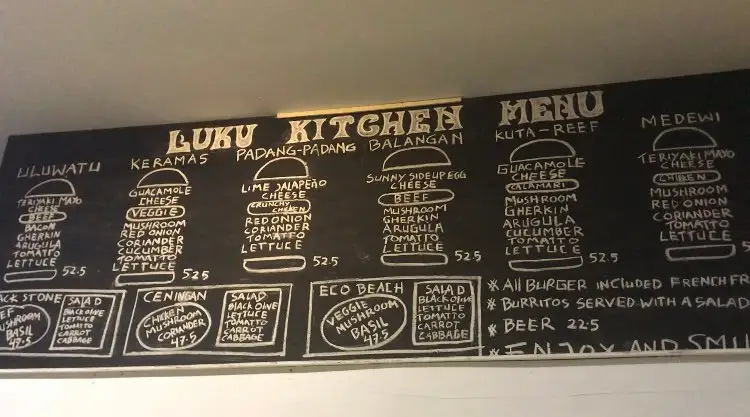 LUKU KITCHEN MENU
ULUWATU
TERIYAKI MAYO
CHEESE
BEEF
BACON
GHERKIN
ARUGULA
TOMATTO
LETTUCE
52.5
KERAMAS
GUACAMOLE
CHEESE
VEGGIE
MUSHROOM
RED ONION
CORIANDER
CUCUMBER
TOMATTO
LETTUCE
52.5
PADANG-PADANG
LIME JALAPEÑO
CHEESE
CRUNCHY
CHICKEN
RED ONION
CORIANDER
TOMATTO
LETTUCE
52.5
BALANGAN
SUNNY SIDEUP EGG
CHEESE
BEEF
MUSHROOM
GHERKIN
ARUGULA
TOMATTO
LETTUCE
52.5
KUTA-REEF
GUACAMOLE
CHEESE
CALAMARI
MUSHROOM
GHERKIN
ARUGULA
CUCUMBER
TOMATTO
LETTUCE
52.5
MEDEWI
TERIYAKI MAYO
CHEESE
CHICKEN
MUSHROOM
RED ONION
CORIANDER
TOMATTO
LETTUCE
5
ACK STONE
EF
USHROOM
BASIL
47.5
SALAD
BLACK OLIVE
LETTUCE
TOMATTO
CARROT
CABBAGE
CENINGAN
CHICKEN
MUSHROOM
CORIANDER
47.5
SALAD
BLACK OLIVE
LETTUCE
TOMATTO
CARROT
CABBAGE
ECO BEACH
VEGGIE
MUSHROOM
BASIL
47.5
SALAD
BLACK OLIVE
LETTUCE
TOMATTO
CARROT
CABBAGE
* ALL BURGER INCLUDED FRENCH FR
* BURRITOS SERVED WITH A SALAD
* BEER 22.5
* ENJOY AND SMIL